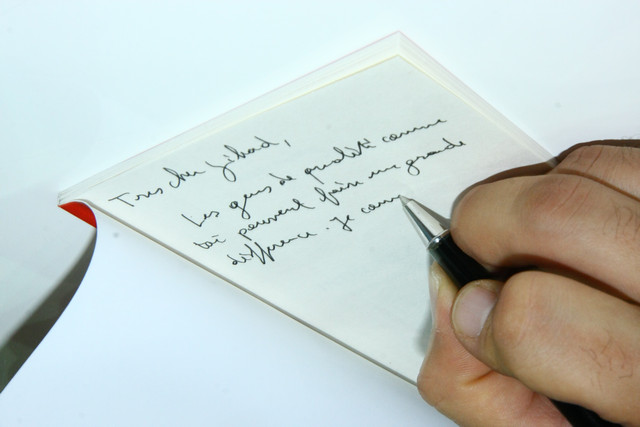 Tres cher Jihad,
Les gens de qualité comme
toi peuvent faire une grande
différence. Je